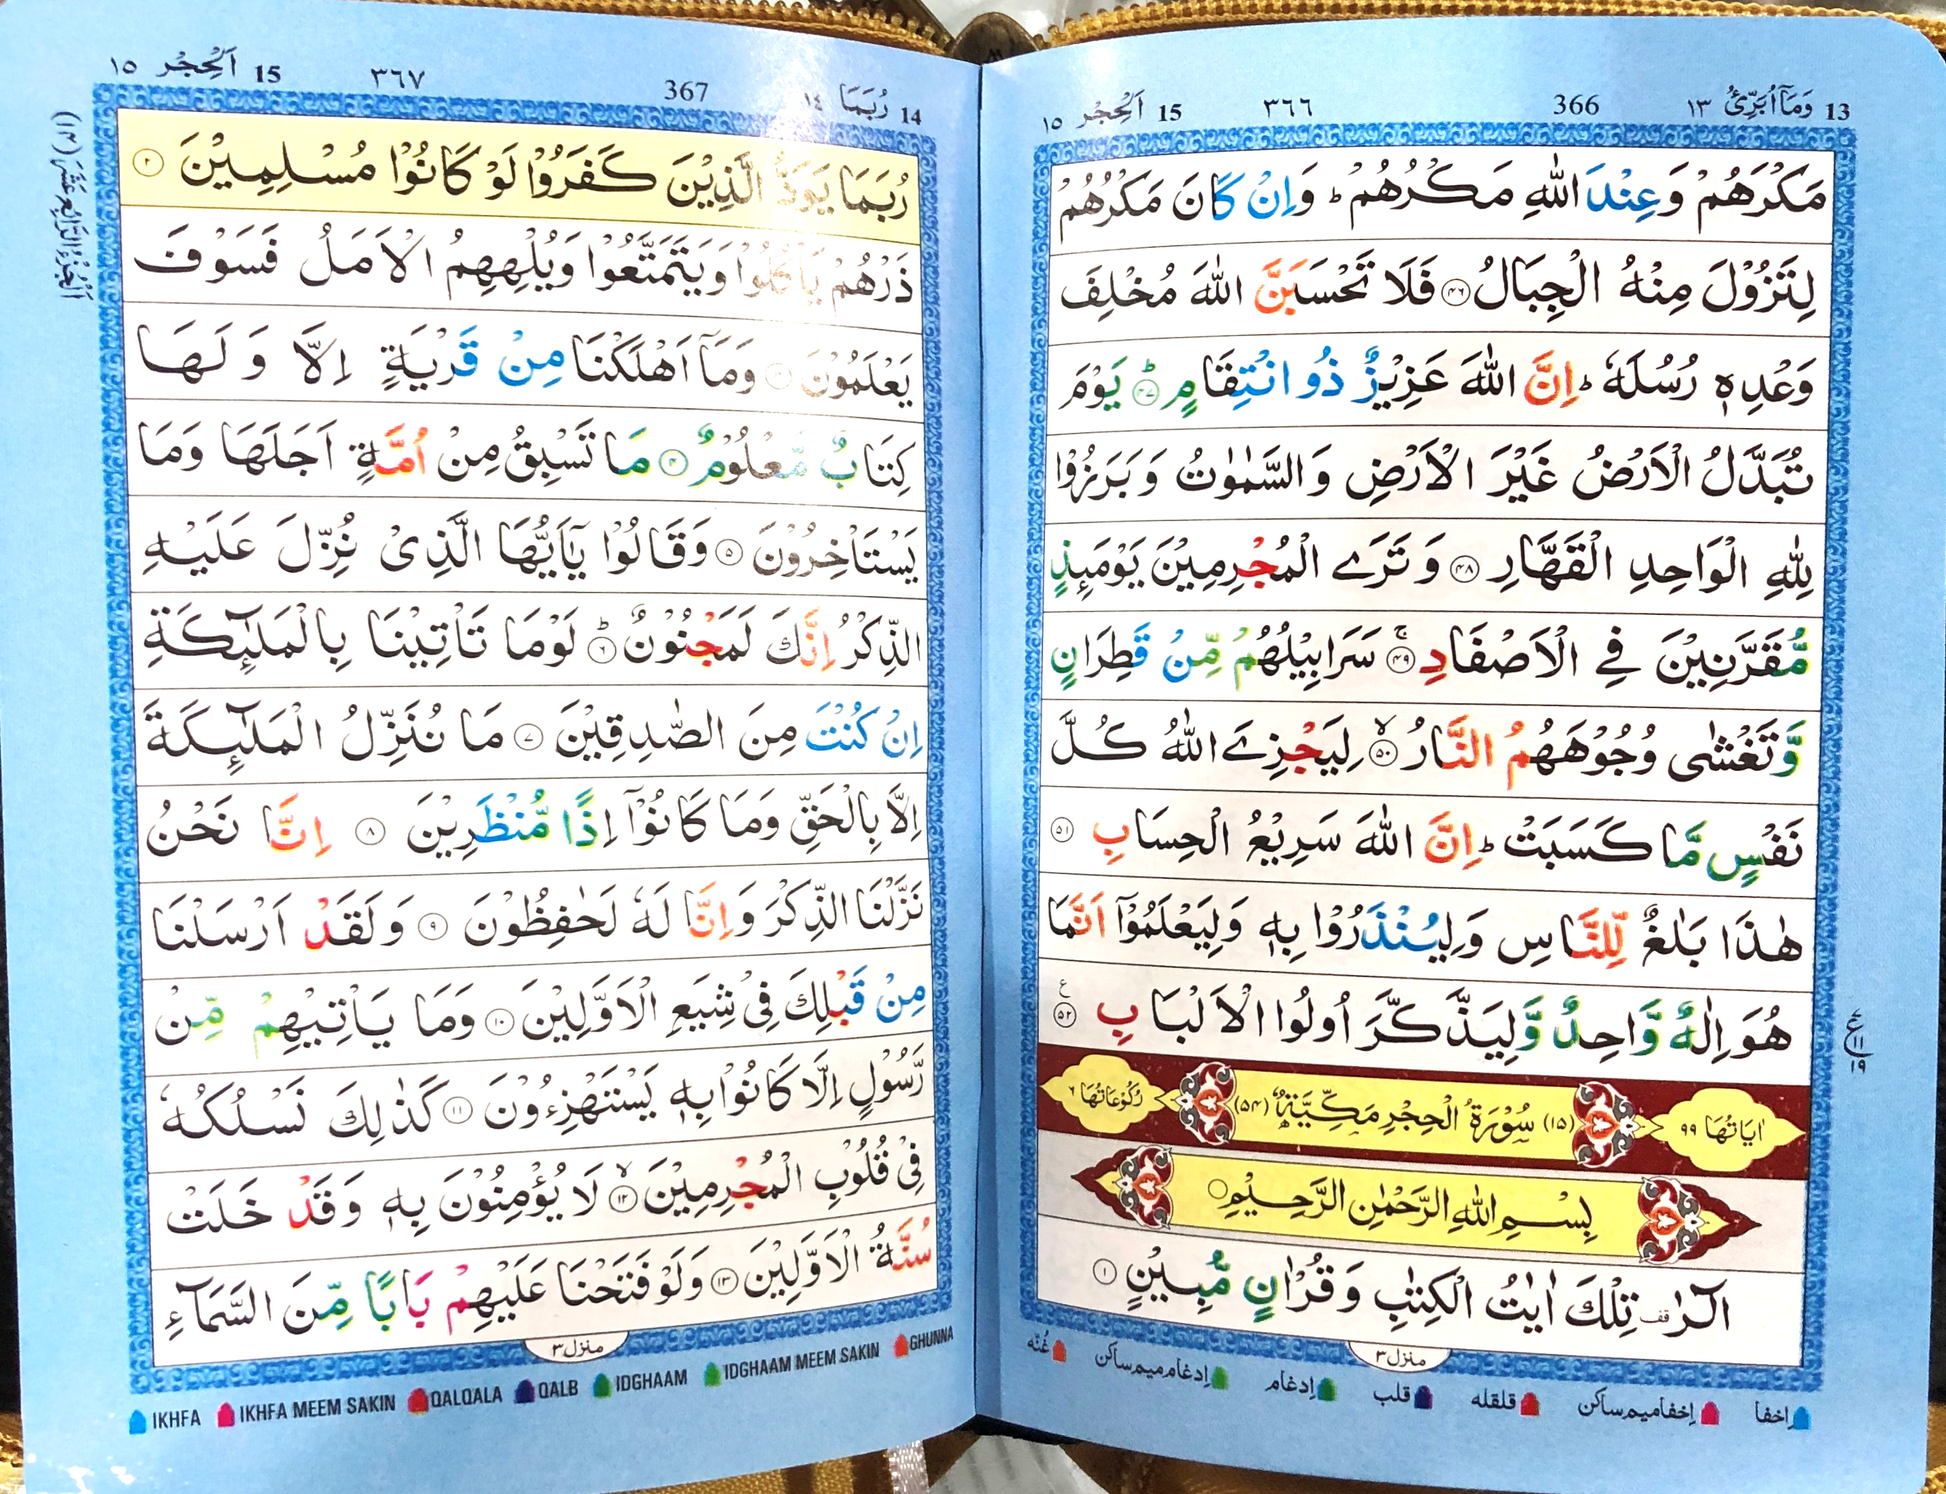 13 وَمَاۤ اُبَرِّئُ ١٣ 366 ٣٦٦ 15 اَلْحِجْر ١٥
مَكْرَهُمْ وَعِنْدَ اللّٰهِ مَكْرُهُمْ ؕ وَاِنْ كَانَ مَكْرُهُمْ
لِتَزُوْلَ مِنْهُ الْجِبَالُ ﴿۴۶﴾ فَلَا تَحْسَبَنَّ اللّٰهَ مُخْلِفَ
وَعْدِهٖ رُسُلَهٗ ؕ اِنَّ اللّٰهَ عَزِيْزٌ ذُو انْتِقَامٍ ﴿ؕ۴۷﴾ يَوْمَ
تُبَدَّلُ الْاَرْضُ غَيْرَ الْاَرْضِ وَالسَّمٰوٰتُ وَبَرَزُوْا
لِلّٰهِ الْوَاحِدِ الْقَهَّارِ ﴿۴۸﴾ وَتَرَے الْمُجْرِمِيْنَ يَوْمَئِذٍ
مُّقَرَّنِيْنَ فِے الْاَصْفَادِ ﴿ۚ۴۹﴾ سَرَابِيْلُهُمْ مِّنْ قَطِرَانٍ
وَّتَغْشٰى وُجُوْهَهُمُ النَّارُ ﴿ۙ۵۰﴾ لِيَجْزِےَ اللّٰهُ كُلَّ
نَفْسٍ مَّا كَسَبَتْ ؕ اِنَّ اللّٰهَ سَرِيْعُ الْحِسَابِ ﴿۵۱﴾
هٰذَا بَلٰغٌ لِّلنَّاسِ وَلِيُنْذَرُوْا بِهٖ وَلِيَعْلَمُوْۤا اَنَّمَا
هُوَ اِلٰهٌ وَّاحِدٌ وَّلِيَذَّكَّرَ اُولُوا الْاَلْبَابِ ﴿۵۲﴾ ع
ع ١١ ١٩
اٰيَاتُهَا ٩٩ (١٥) سُوْرَةُ الْحِجْرِ مَكِّيَّةٌ (۵۴) رُكُوْعَاتُهَا ٦
بِسْمِ اللّٰهِ الرَّحْمٰنِ الرَّحِيْمِ
الٓرٰ قف تِلْكَ اٰيٰتُ الْكِتٰبِ وَقُرْاٰنٍ مُّبِيْنٍ ﴿۱﴾
منزل ٣
اِخفا اِخفا میم ساکن قلقله قلب اِدغام اِدغام میم ساکن غُنّه
14 رُبَمَا ١٤ 367 ٣٦٧ 15 اَلْحِجْر ١٥
اَلْجُزْءُ الرَّابِعُ عَشَرَ (١٤)
رُبَمَا يَوَدُّ الَّذِيْنَ كَفَرُوْا لَوْ كَانُوْا مُسْلِمِيْنَ ﴿۲﴾
ذَرْهُمْ يَاْكُلُوْا وَيَتَمَتَّعُوْا وَيُلْهِهِمُ الْاَمَلُ فَسَوْفَ
يَعْلَمُوْنَ ﴿۳﴾ وَمَاۤ اَهْلَكْنَا مِنْ قَرْيَةٍ اِلَّا وَلَهَا
كِتَابٌ مَّعْلُوْمٌ ﴿۴﴾ مَا تَسْبِقُ مِنْ اُمَّةٍ اَجَلَهَا وَمَا
يَسْتَاْخِرُوْنَ ﴿۵﴾ وَقَالُوْا يٰۤاَيُّهَا الَّذِىْ نُزِّلَ عَلَيْهِ
الذِّكْرُ اِنَّكَ لَمَجْنُوْنٌ ﴿ؕ۶﴾ لَوْمَا تَاْتِيْنَا بِالْمَلٰٓئِكَةِ
اِنْ كُنْتَ مِنَ الصّٰدِقِيْنَ ﴿۷﴾ مَا نُنَزِّلُ الْمَلٰٓئِكَةَ
اِلَّا بِالْحَقِّ وَمَا كَانُوْۤا اِذًا مُّنْظَرِيْنَ ﴿۸﴾ اِنَّا نَحْنُ
نَزَّلْنَا الذِّكْرَ وَاِنَّا لَهٗ لَحٰفِظُوْنَ ﴿۹﴾ وَلَقَدْ اَرْسَلْنَا
مِنْ قَبْلِكَ فِىْ شِيَعِ الْاَوَّلِيْنَ ﴿۱۰﴾ وَمَا يَاْتِيْهِمْ مِّنْ
رَّسُوْلٍ اِلَّا كَانُوْا بِهٖ يَسْتَهْزِءُوْنَ ﴿۱۱﴾ كَذٰلِكَ نَسْلُكُهٗ
فِىْ قُلُوْبِ الْمُجْرِمِيْنَ ﴿ۙ۱۲﴾ لَا يُؤْمِنُوْنَ بِهٖ وَقَدْ خَلَتْ
سُنَّةُ الْاَوَّلِيْنَ ﴿۱۳﴾ وَلَوْ فَتَحْنَا عَلَيْهِمْ بَابًا مِّنَ السَّمَآءِ
منزل ٣
IKHFA IKHFA MEEM SAKIN QALQALA QALB IDGHAAM IDGHAAM MEEM SAKIN GHUNNA